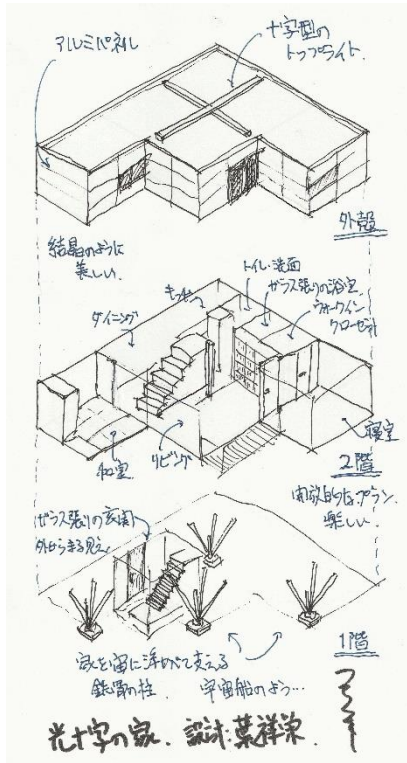 アルミパネル
十字型の
トップライト.
外殻
結晶のように
美しい.
トイレ・洗面
ガラス張りの浴室.
ウォークイン
クローゼット
キッチン
ダイニング
和室
リビング
寝室
2階
開放的なプラン.
楽しい.
ガラス張りの玄関
外からまる見え
1階
家を宙に浮かべて支える
鉄骨の柱.
宇宙船のよう…
光十字の家. 設計:葉祥栄.